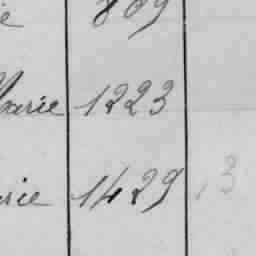 e 809
Marie 1223
rie 1429 13